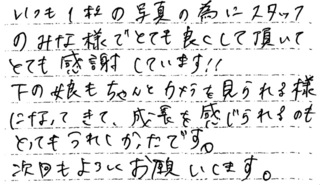 いつも1枚の写真の為にスタッフ
のみな様でとても良くして頂いて
とても感謝しています!!
下の娘もちゃんとカメラを見られる様
になってきて、成長を感じられるのも
とってもうれしかったです。
次回もよろしくお願いします。